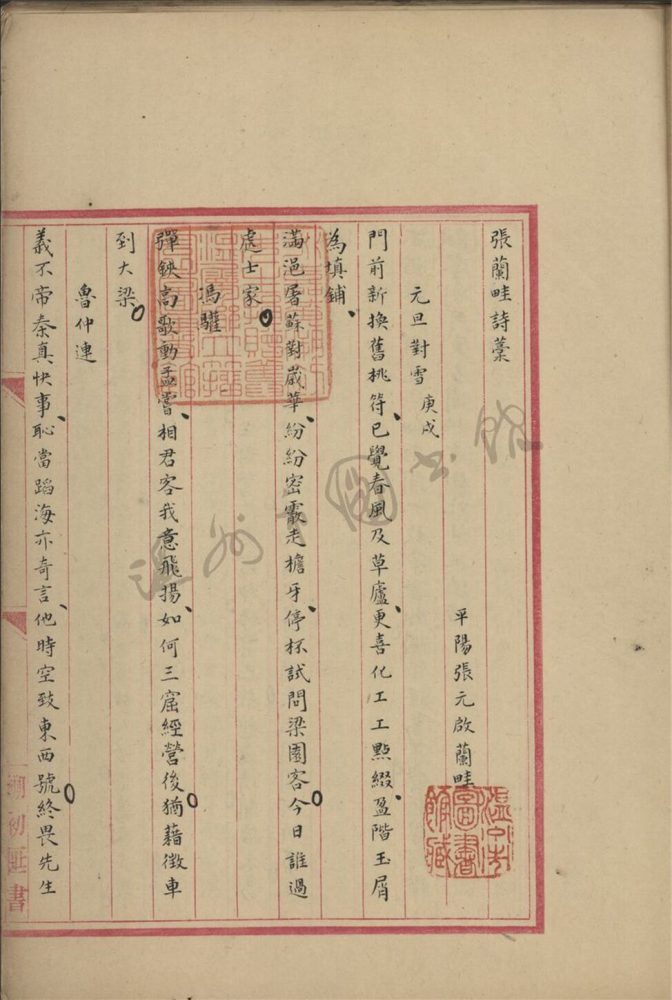 張蘭畦詩藁
平陽張元啟蘭畦
元旦對雪 庚戌
門前新換舊桃符已覺春風及草廬更喜化工工點綴盈階玉屑
為填鋪
滿浥屠蘇對歲華紛紛密霰走檐牙停杯試問梁園客今日誰過
處士家
馮驩
彈鋏高歌動孟嘗相君客我意飛揚如何三窟經營後猶藉徵車
到大梁
魯仲連
義不帝秦真快事恥當蹈海亦奇言他時空致東西號終畏先生
溫州市圖書館藏